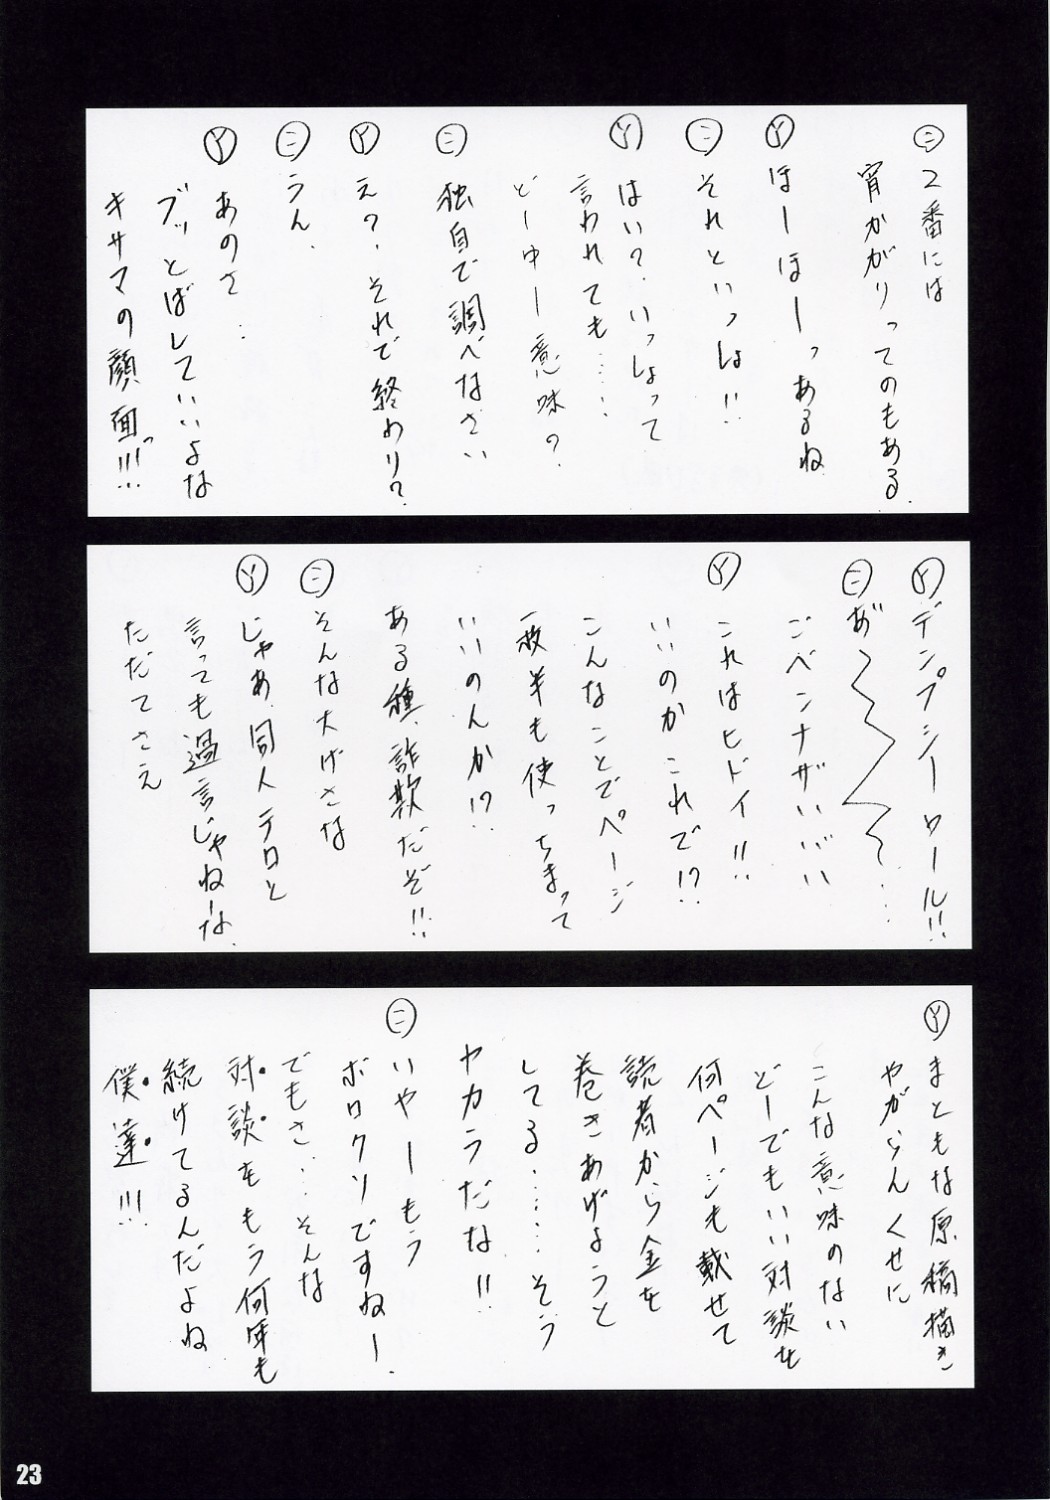 ㊁ 2番には
宵かがりってのもある.
Ⓨ ほーほーっあるね
㊁ それといっしょ!!
Ⓨ はい?いっしょって
言われても……
どーゆー意味?
㊁ 独自で調べなさい
Ⓨ え?それで終わり?
㊁ うん.
Ⓨ あのさ…
ブッとばしていいよな
キサマの顔面っ!!!
Ⓨ デンプシーロール!!
㊁ あ゛〜〜〜…
ごベンナザいいバいい
Ⓨ これはヒドイ!!
いいのかこれで!?
こんなことでページ
一枚半も使っちまって
いいのんか!?
ある種、詐欺だぞ!!
㊁ そんな大げさな
Ⓨ じゃあ同人テロと
言っても過言じゃねーな.
ただでさえ
Ⓨ まともな原稿描き
やがらんくせに
こんな意味のない
どーでもいい対談を
何ページも載せて
読者から金を
巻きあげようと
してる……そう
ヤカラだな!!
㊁ いやーもう
ボロクソですねー.
でもさ…そんな
対談をもう何年も
続けてるんだよね
僕達!!!
23